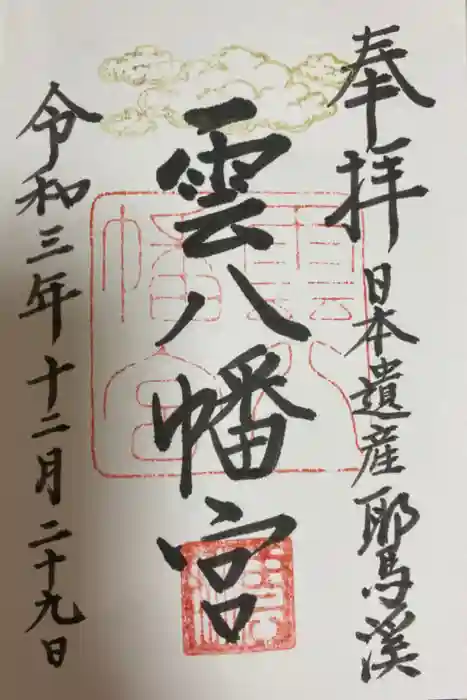 奉拝
日本遺産耶馬溪
雲八幡宮
令和三年十二月二十九日
雲八幡宮